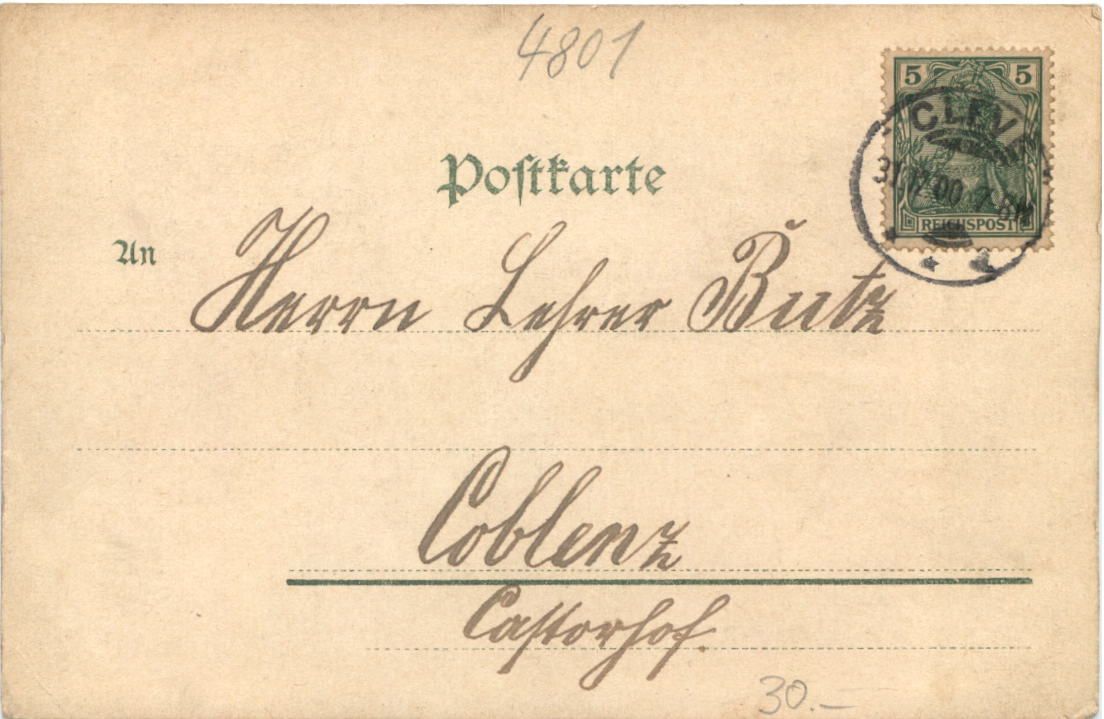 4801
5 5
CLEVE
31.12.00. 7-8N
REICHSPOST
Poſtkarte
An
Herrn Lehrer Butz
Coblenz
Caſtorhof.
30.—